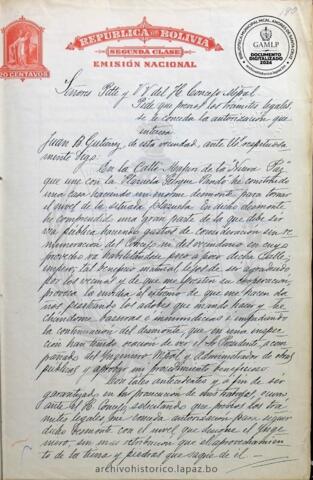 REPUBLICA DE BOLIVIA
SEGUNDA CLASE
EMISIÓN NACIONAL
20 CENTAVOS
BIBLIOTECA MUNICIPAL MCAL. ANDRÉS DE SANTA CRUZ
GAMLP
DOCUMENTO
DIGITALIZADO
2024
archivohistorico.lapaz.bo
Señores Pdte y V V del H Concejo Mpal
Pide que previos los trámites legales
se le conceda la autorización que
Juan B Gutierrez, de esta vecindad, ante Us respetuosa
mente digo:
En la Calle de la Nueva Paz
que une con la Plazuela Vando he construido
una casa haciendo un enorme desmonte para tomar
el nivel de la citada Plazuela. En dicho desmonte
he comprendido una gran parte de lo que debe ser
via publica haciendo gastos de consideración sin re
muneracion del Concejo ni del vecindario en cuyo
provecho va habilitandose poco a poco dicha Calle;
empero, tal beneficio material, lejos de ser agradecido
por los vecinos y de que me presten su cooperacion,
provoca la envidia al extremo de que me hacen da
nos pisoteando los adobes que mando hacer y
basuras o inmundicias é impidiendo
la continuacion del desmonte, que en una inspec
cion han tenido ocasion de ver el Sr Presidente, acom
pañado del Yngeniero Mpal y Administrador de obras
publicas y aprobar mi procedimiento beneficioso
Con tales antecedentes y á fin de ser
garantizado en la prosecucion de mis trabajos, ocurro
ante el H. Concejo solicitando que previos los tra
mites legales me conceda autorizacion para seguir
dicho desmonte con el nivel que designe el Ynge
niero, sin mas retribucion que el aprovechamien
to de la tierra y piedras que salga de él
archivohistorico.lapaz.bo